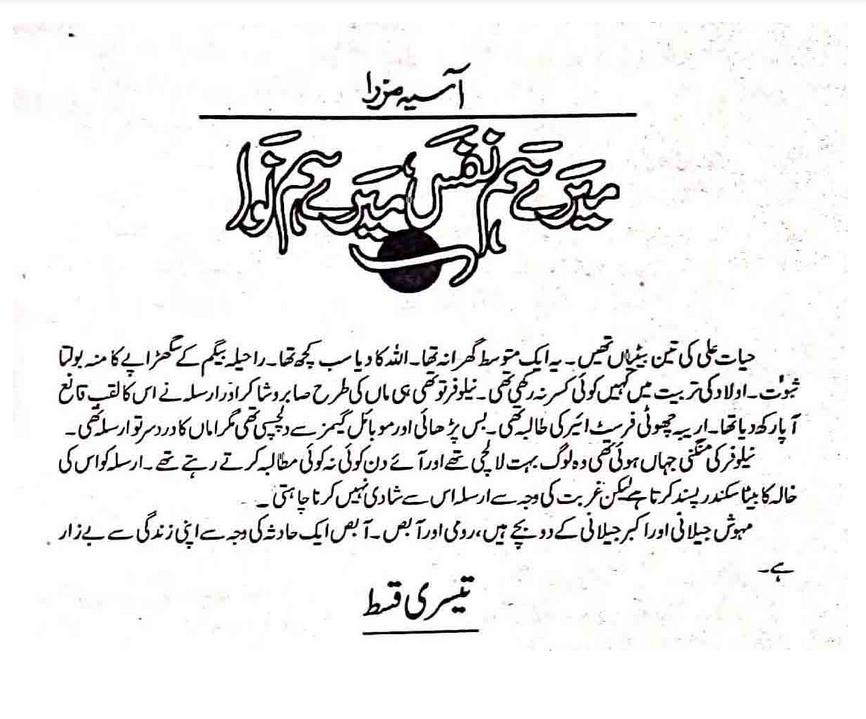 آسیہ مرزا
میرے ہم نفس میرے ہم نوا
حیات علی کی تین بیٹیاں تھیں۔ یہ ایک متوسط گھرانہ تھا۔ اللہ کا دیا سب کچھ تھا۔ راحیلہ بیگم کے سگھڑاپے کا منہ بولتا
ثبوت۔ اولاد کی تربیت میں کہیں کوئی کسر نہ رکھی تھی۔ نیلوفر تو تھی ہی ماں کی طرح صابر و شاکر اور ارسلہ نے اس کا لقب قانع
آپا رکھ دیا تھا۔ اریبہ چھوٹی فرسٹ ائیر کی طالبہ تھی۔ بس پڑھائی اور موبائل گیمز سے دلچسپی تھی مگر اماں کا درد سر تو ارسلہ تھی۔
نیلوفر کی منگنی جہاں ہوئی تھی وہ لوگ بہت لالچی تھے اور آئے دن کوئی نہ کوئی مطالبہ کرتے رہتے تھے۔ ارسلہ کو اس کی
خالہ کا بیٹا سکندر پسند کرتا ہے لیکن غربت کی وجہ سے ارسلہ اس سے شادی نہیں کرنا چاہتی۔
مہوش جیلانی اور اکبر جیلانی کے دو بچے ہیں، رومی اور آبص۔ آبص ایک حادثہ کی وجہ سے اپنی زندگی سے بے زار
ہے۔
تیسری قسط